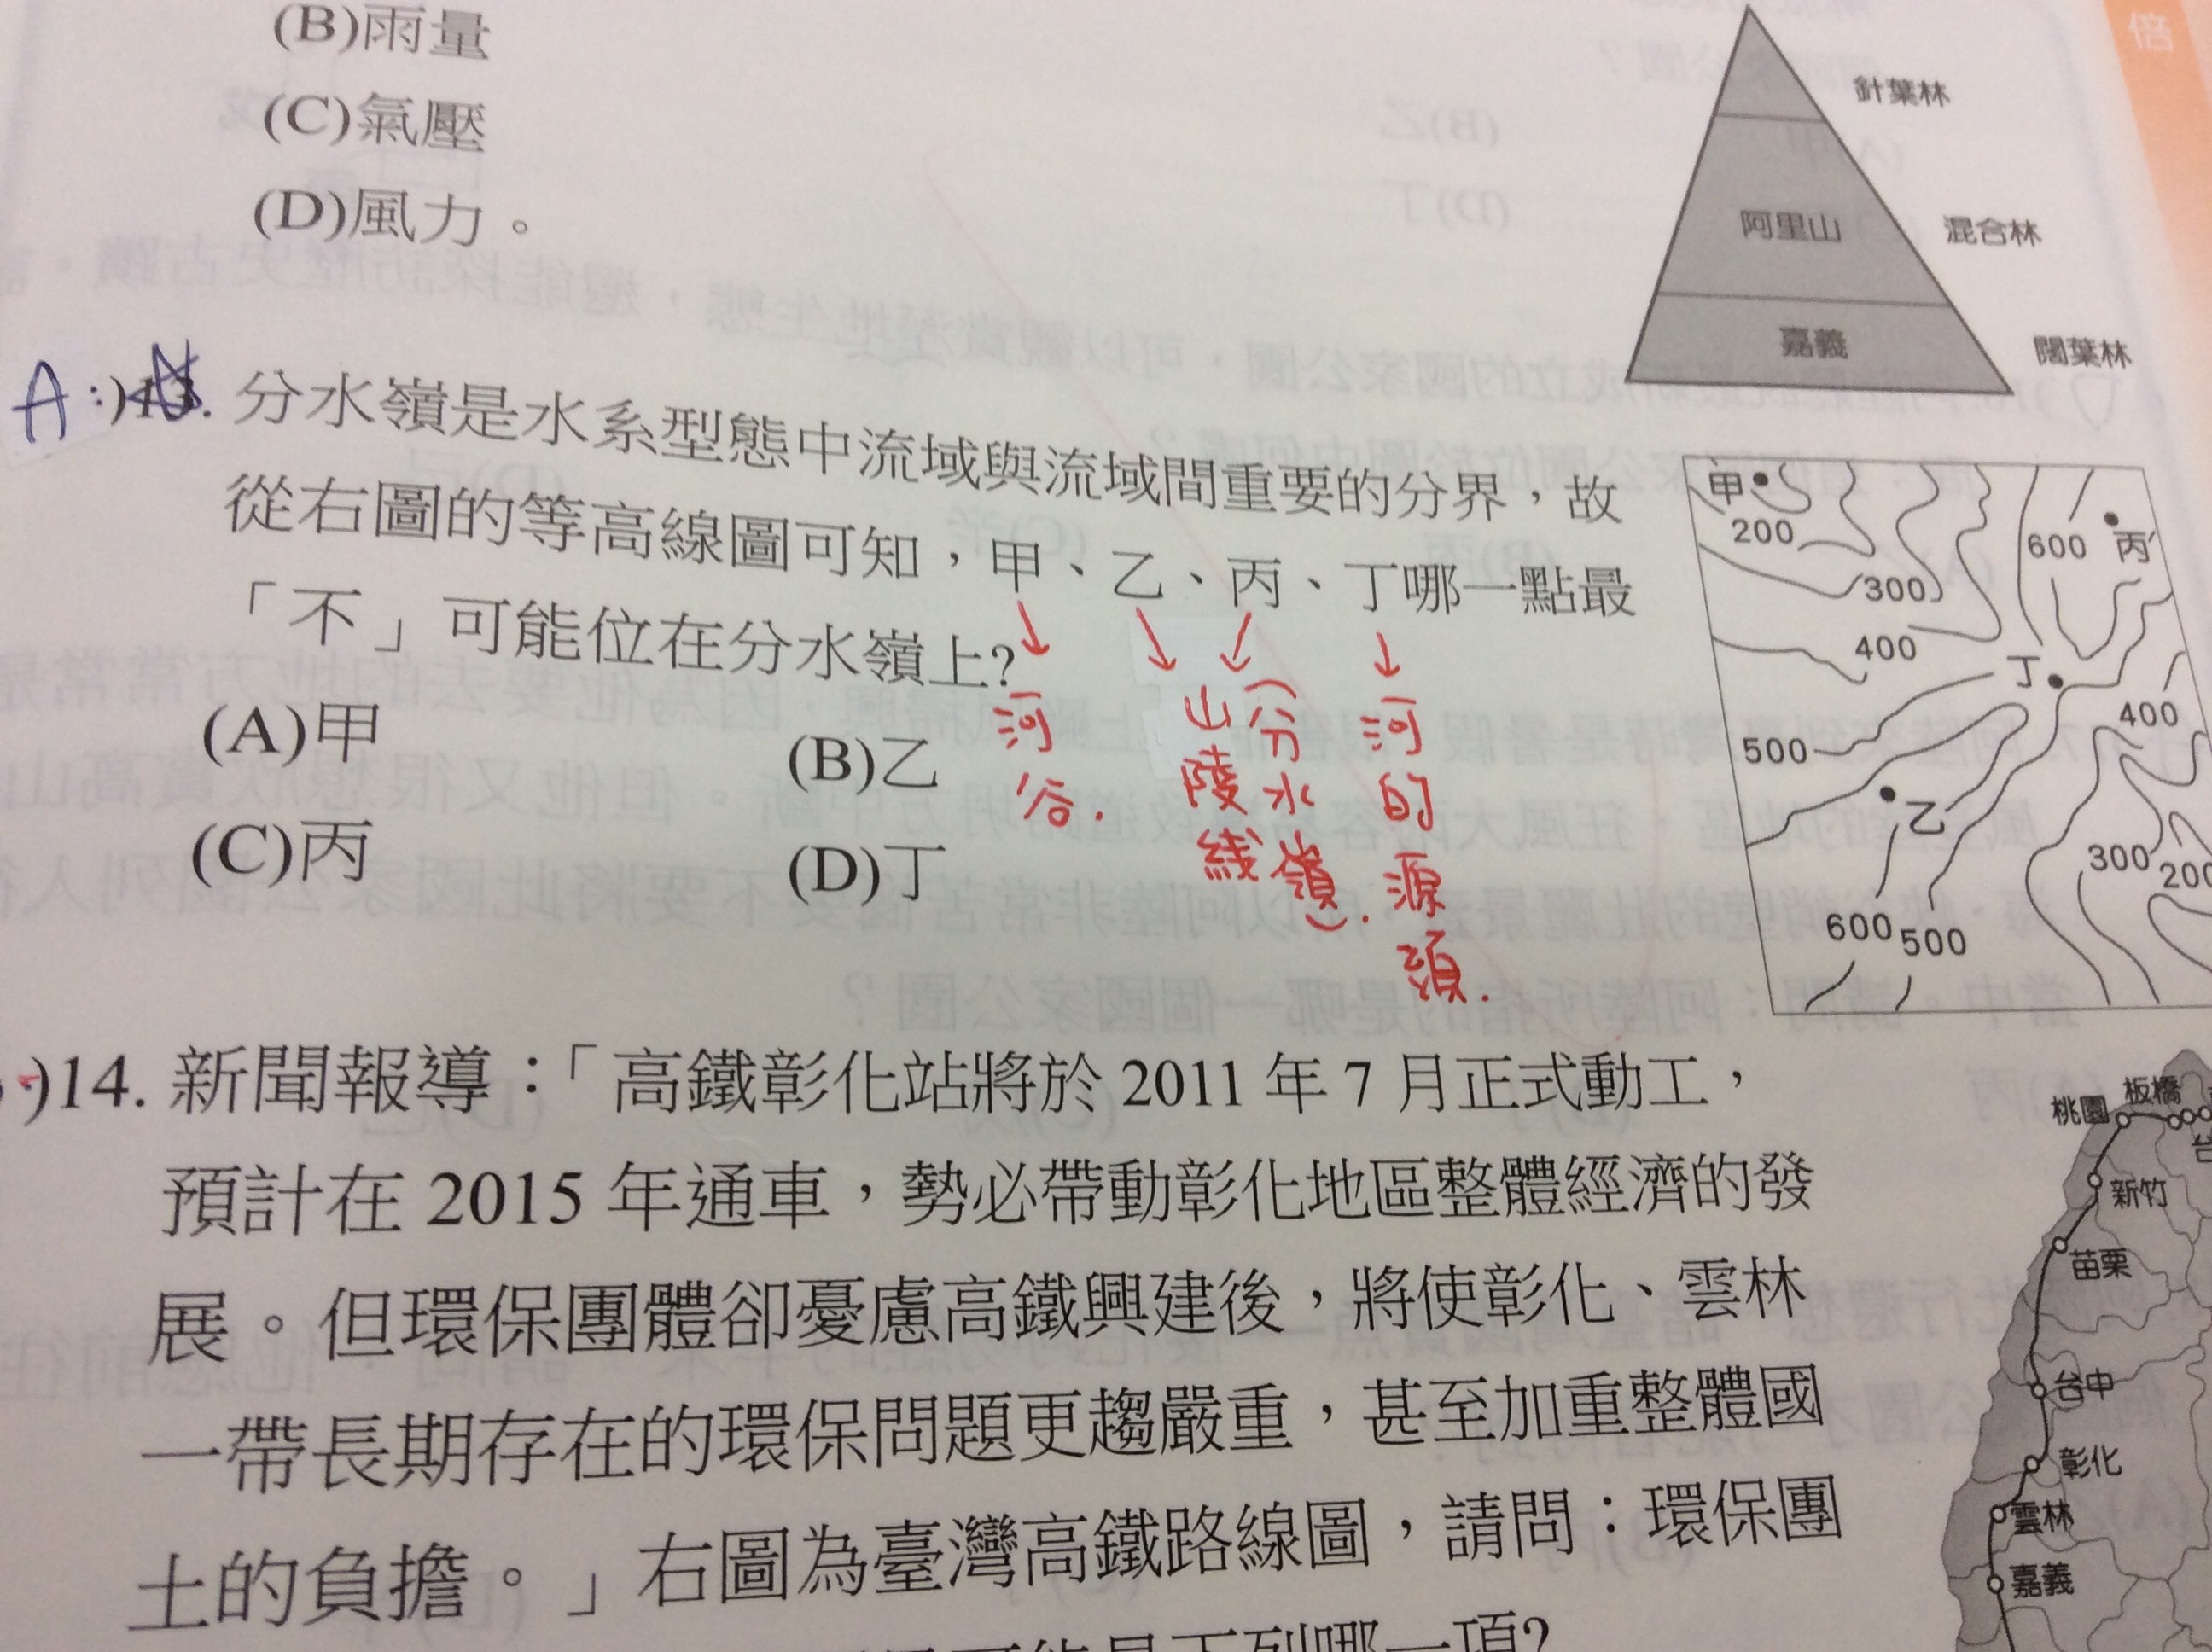 (B)雨量
(C)氣壓
(D)風力。
針葉林
阿里山
混合林
嘉義
闊葉林
倍
A:)13. 分水嶺是水系型態中流域與流域間重要的分界，故
從右圖的等高線圖可知，甲、乙、丙、丁哪一點最
「不」可能位在分水嶺上?
(A)甲
(B)乙
(C)丙
(D)丁
河谷.
山陵線
(分水嶺).
河的源頭.
甲
200
300
400
500
600
丙
丁
400
乙
300
200
600
500
)14. 新聞報導：「高鐵彰化站將於 2011 年 7 月正式動工，
預計在 2015 年通車，勢必帶動彰化地區整體經濟的發
展。但環保團體卻憂慮高鐵興建後，將使彰化、雲林
一帶長期存在的環保問題更趨嚴重，甚至加重整體國
土的負擔。」右圖為臺灣高鐵路線圖，請問：環保團
下列哪一項?
板橋
桃園
新竹
苗栗
台中
彰化
雲林
嘉義